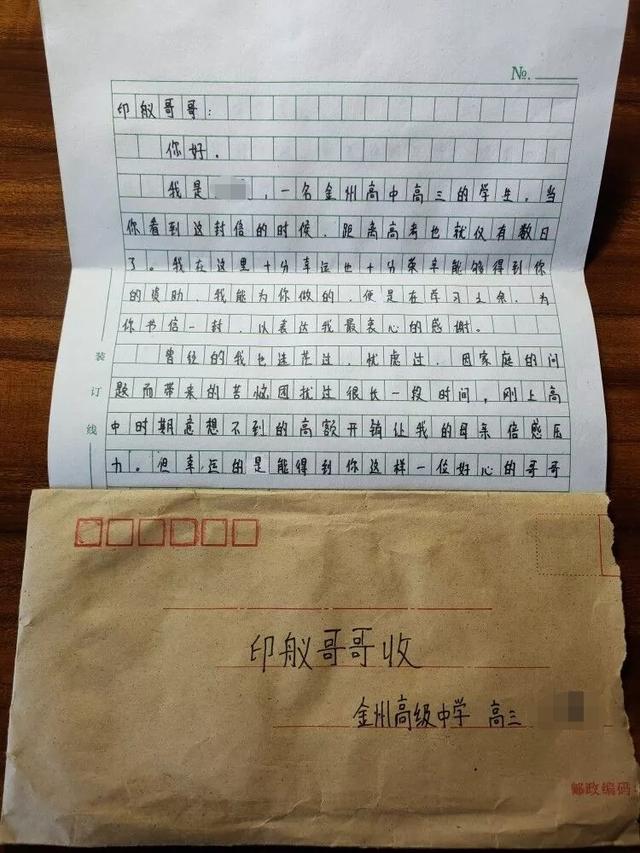 No.
印舣哥哥：
你好。
我是，一名金州高中高三的学生。当
你看到这封信的时候，距离高考也就仅有数日
了。我在这里十分幸运也十分荣幸能够得到你
的资助，我能为你做的，便是在学习之余，为
你书信一封，以表达我最衷心的感谢。
曾经的我也迷茫过，忧虑过，因家庭的问
题而带来的苦恼困扰过很长一段时间，刚上高
中时期意想不到的高额开销让我的母亲倍感压
力。但幸运的是能得到你这样一位好心的哥哥
装订线
印舣哥哥收
金州高级中学 高三
邮政编码：